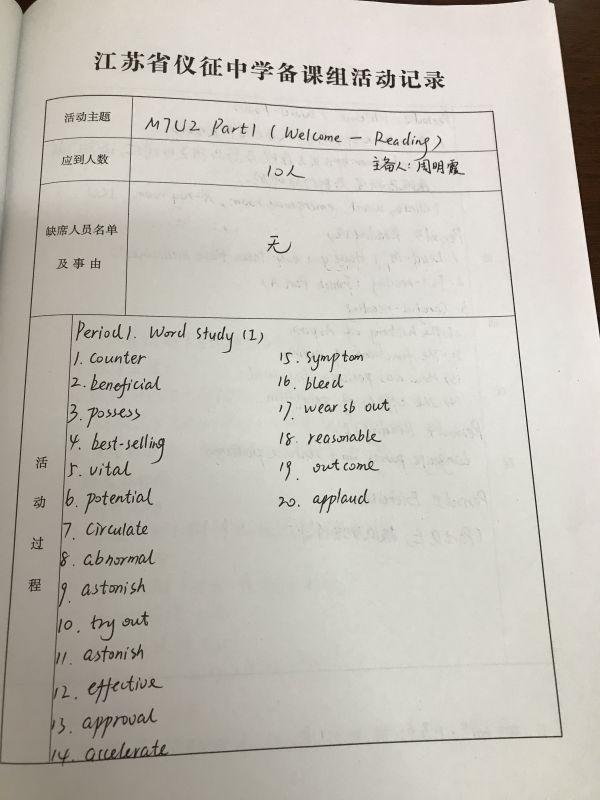 江苏省仪征中学备课组活动记录
活动主题 M7U2 Part1 (Welcome — Reading)
应到人数 10人 主备人:周明霞
缺席人员名单
及事由 无
活动过程
Period1. Word study (1)
1. counter
2. beneficial
3. possess
4. best-selling
5. vital
6. potential
7. circulate
8. abnormal
9. astonish
10. try out
11. astonish
12. effective
13. approval
14. accelerate
15. symptom
16. bleed
17. wear sb out
18. reasonable
19. outcome
20. applaud